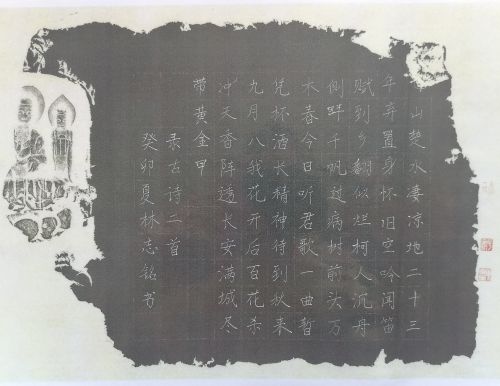 山楚水凄凉地二十三
年弃置身怀旧空吟闻笛
赋到乡翻似烂柯人沉舟
侧畔千帆过病树前头万
木春今日听君歌一曲暂
凭杯酒长精神待到秋来
九月八我花开后百花杀
冲天香阵透长安满城尽
带黄金甲
录古诗二首
癸卯夏林志铭书